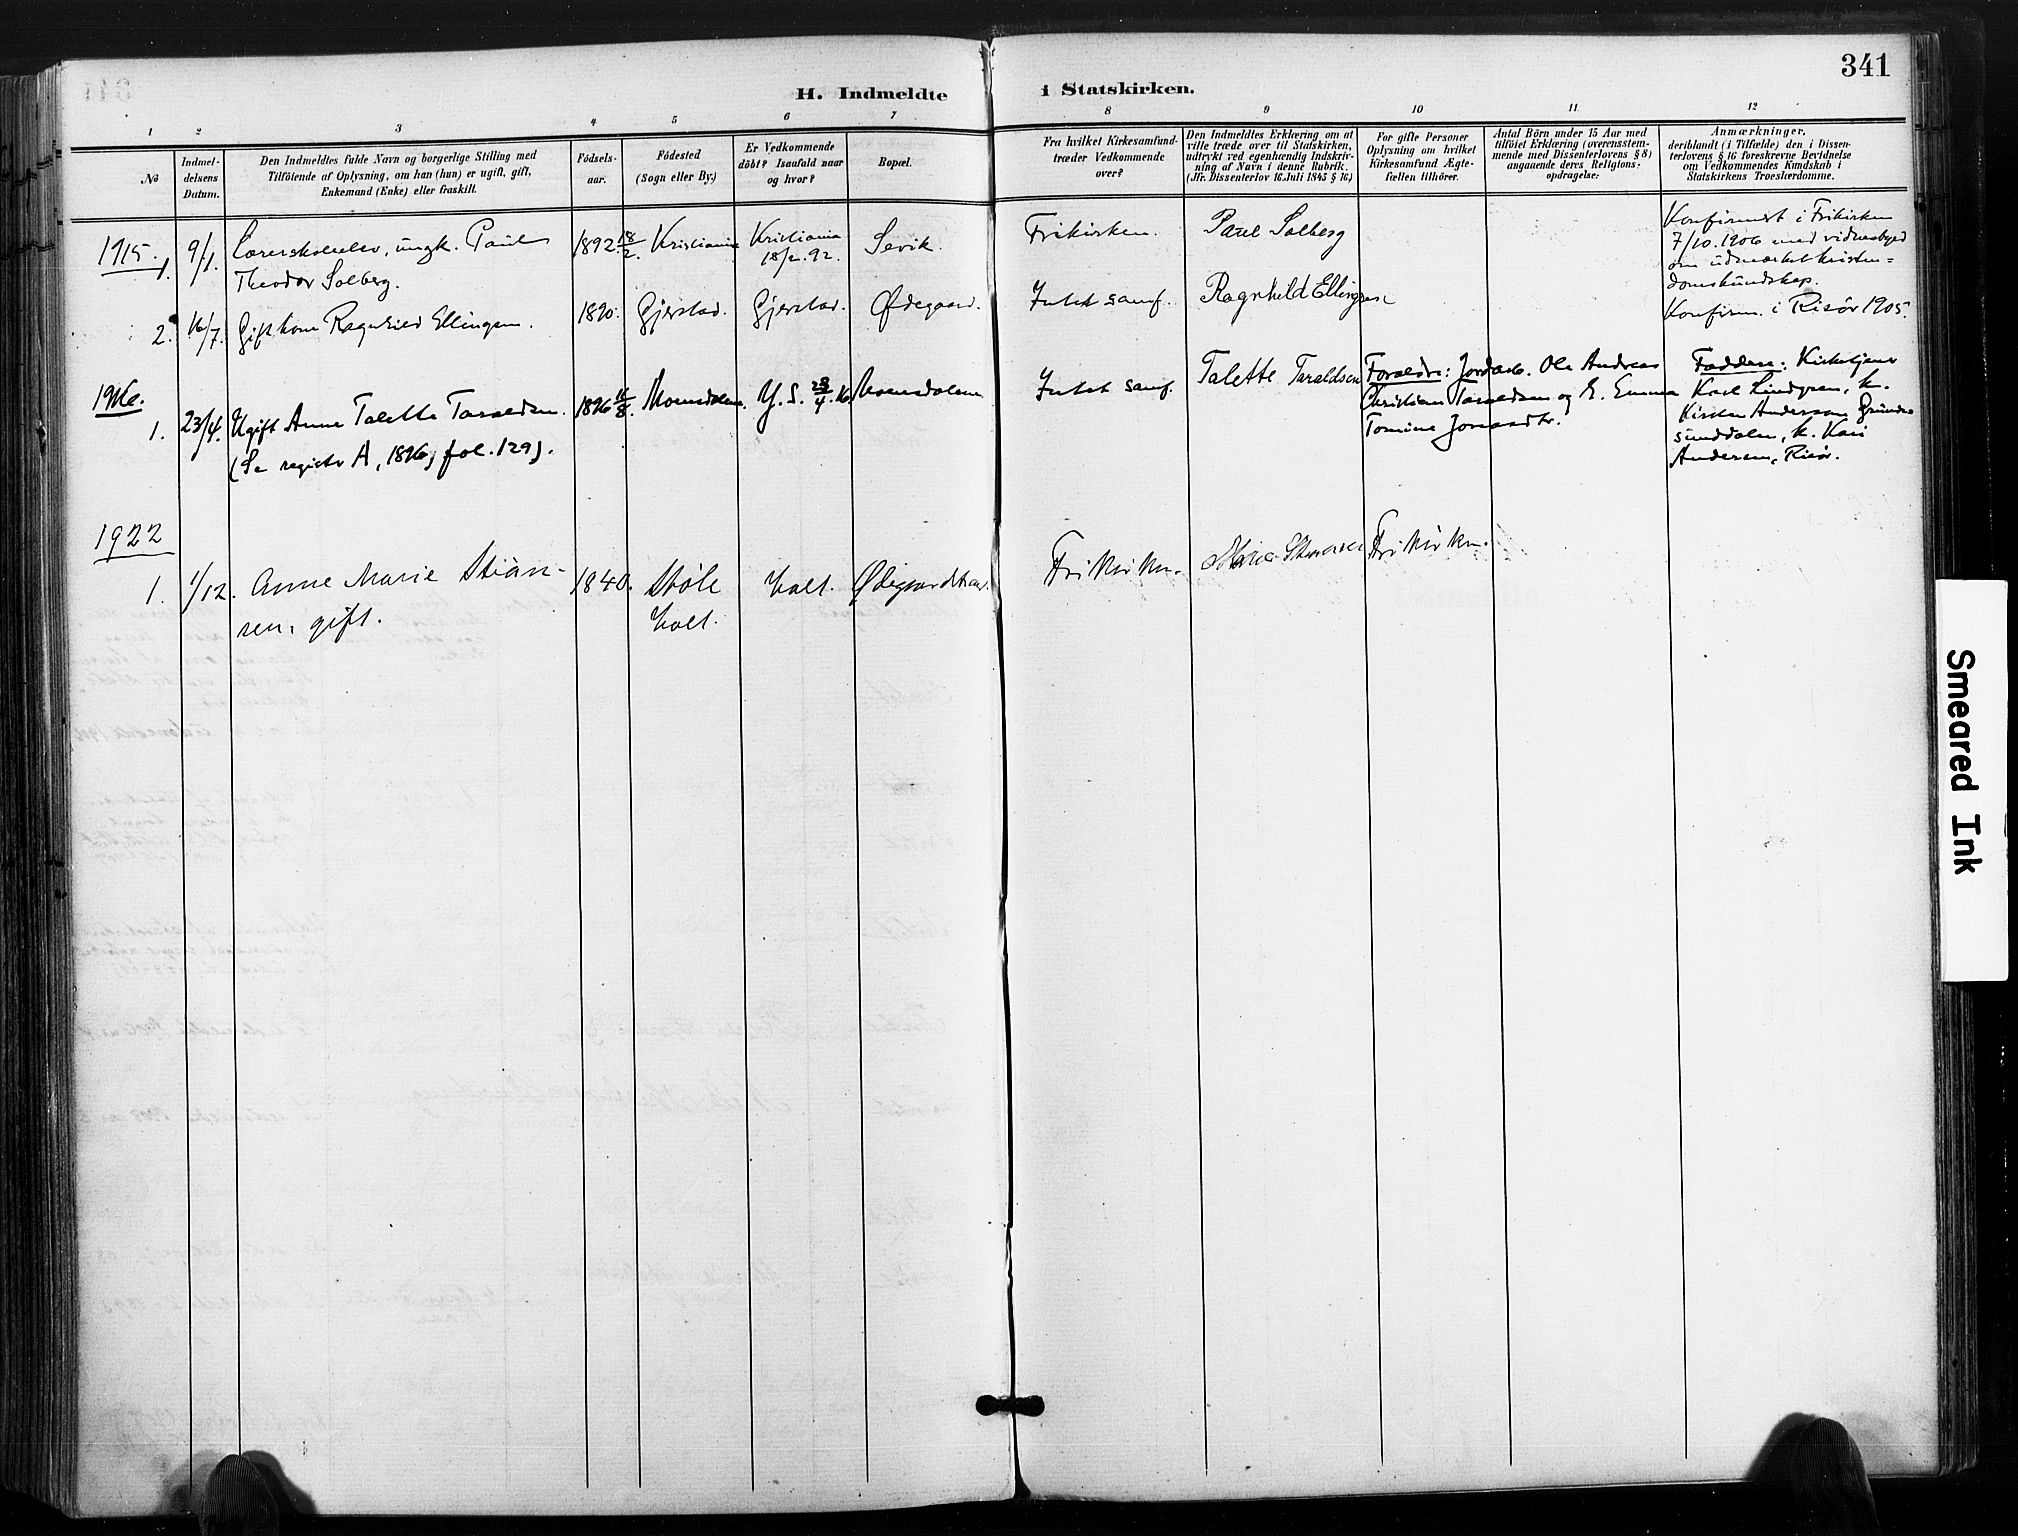 341
H. Indmeldte i Statskirken.
1 2 3 4 5 6 7 8 9 10 11 12
No
Indmel-
delsens
Datum.
Den Indmeldtes fulde Navn og borgerlige Stilling med
Tilföiende af Oplysning, om han (hun) er ugift, gift,
Enkemand (Enke) eller fraskilt.
Födsels-
aar.
Födested
(Sogn eller By.)
Er Vedkommende
döbt? Isaafald naar
og hvor?
Bopæl.
Fra hvilket Kirkesamfund
træder Vedkommende
over?
Den Indmeldtes Erklæring om at
ville træde over til Statskirken,
udtrykt ved egenhændig Indskriv-
ning af Navn i denne Rubrik.
(Jfr. Dissenterlov 16 Juli 1845 § 16.)
For gifte Personer
Oplysning om hvilket
Kirkesamfund Ægte-
fællen tilhörer.
Antal Börn under 15 Aar med
tilföiet Erklæring (overensstem-
mende med Dissenterlovens § 8)
angaaende deres Religions-
opdragelse:
Anmærkninger,
deriblandt (i Tilfælde) den i Dissen-
terlovens § 16 foreskrevne Bevidnelse
om Vedkommendes Kundskab i
Statskirkens Troeslærdomme.
1915.
1. 9/1. Lærerskoleelev, ungk. Paul
Theodor Solberg.
1892 18/2. Kristiania
Kristiania
18/2. 92.
Sevik.
Frikirken.
Paul Solberg
Konfirmert i Frikirken
7/10. 1906 med vidnesbyrd
om udmærket kristen=
domskundskap.
2. 16/7. Gift kone Ragnhild Ellingsen.
1890. Gjerstad. Gjerstad. Ødegaard.
Intet samf.
Ragnhild Ellingsen
Konfirm. i Risör 1905.
1916.
1. 23/4. Ugift Anne Talette Taraldsen.
(Se register A, 1896, fol. 129).
1896 16/8. Moensdalen. Y. S. 23/4. 16. Moensdalen
Intet samf.
Talette Taraldsen
Foraeldre: Jordarb. Ole Andreas
Christian Taraldsen og E. Emma
Tomine
Faddere: Kirketjener
Karl Lindgren, k.
Kirsten Andersen
sunddalen, k. Kari
Andersen, Risör.
1922
1. 1/12. Anne Marie Stian-
sen, gift.
1840.
Støle
Holt.
Holt.
Frikirken.
Frikirken.
Smeared Ink